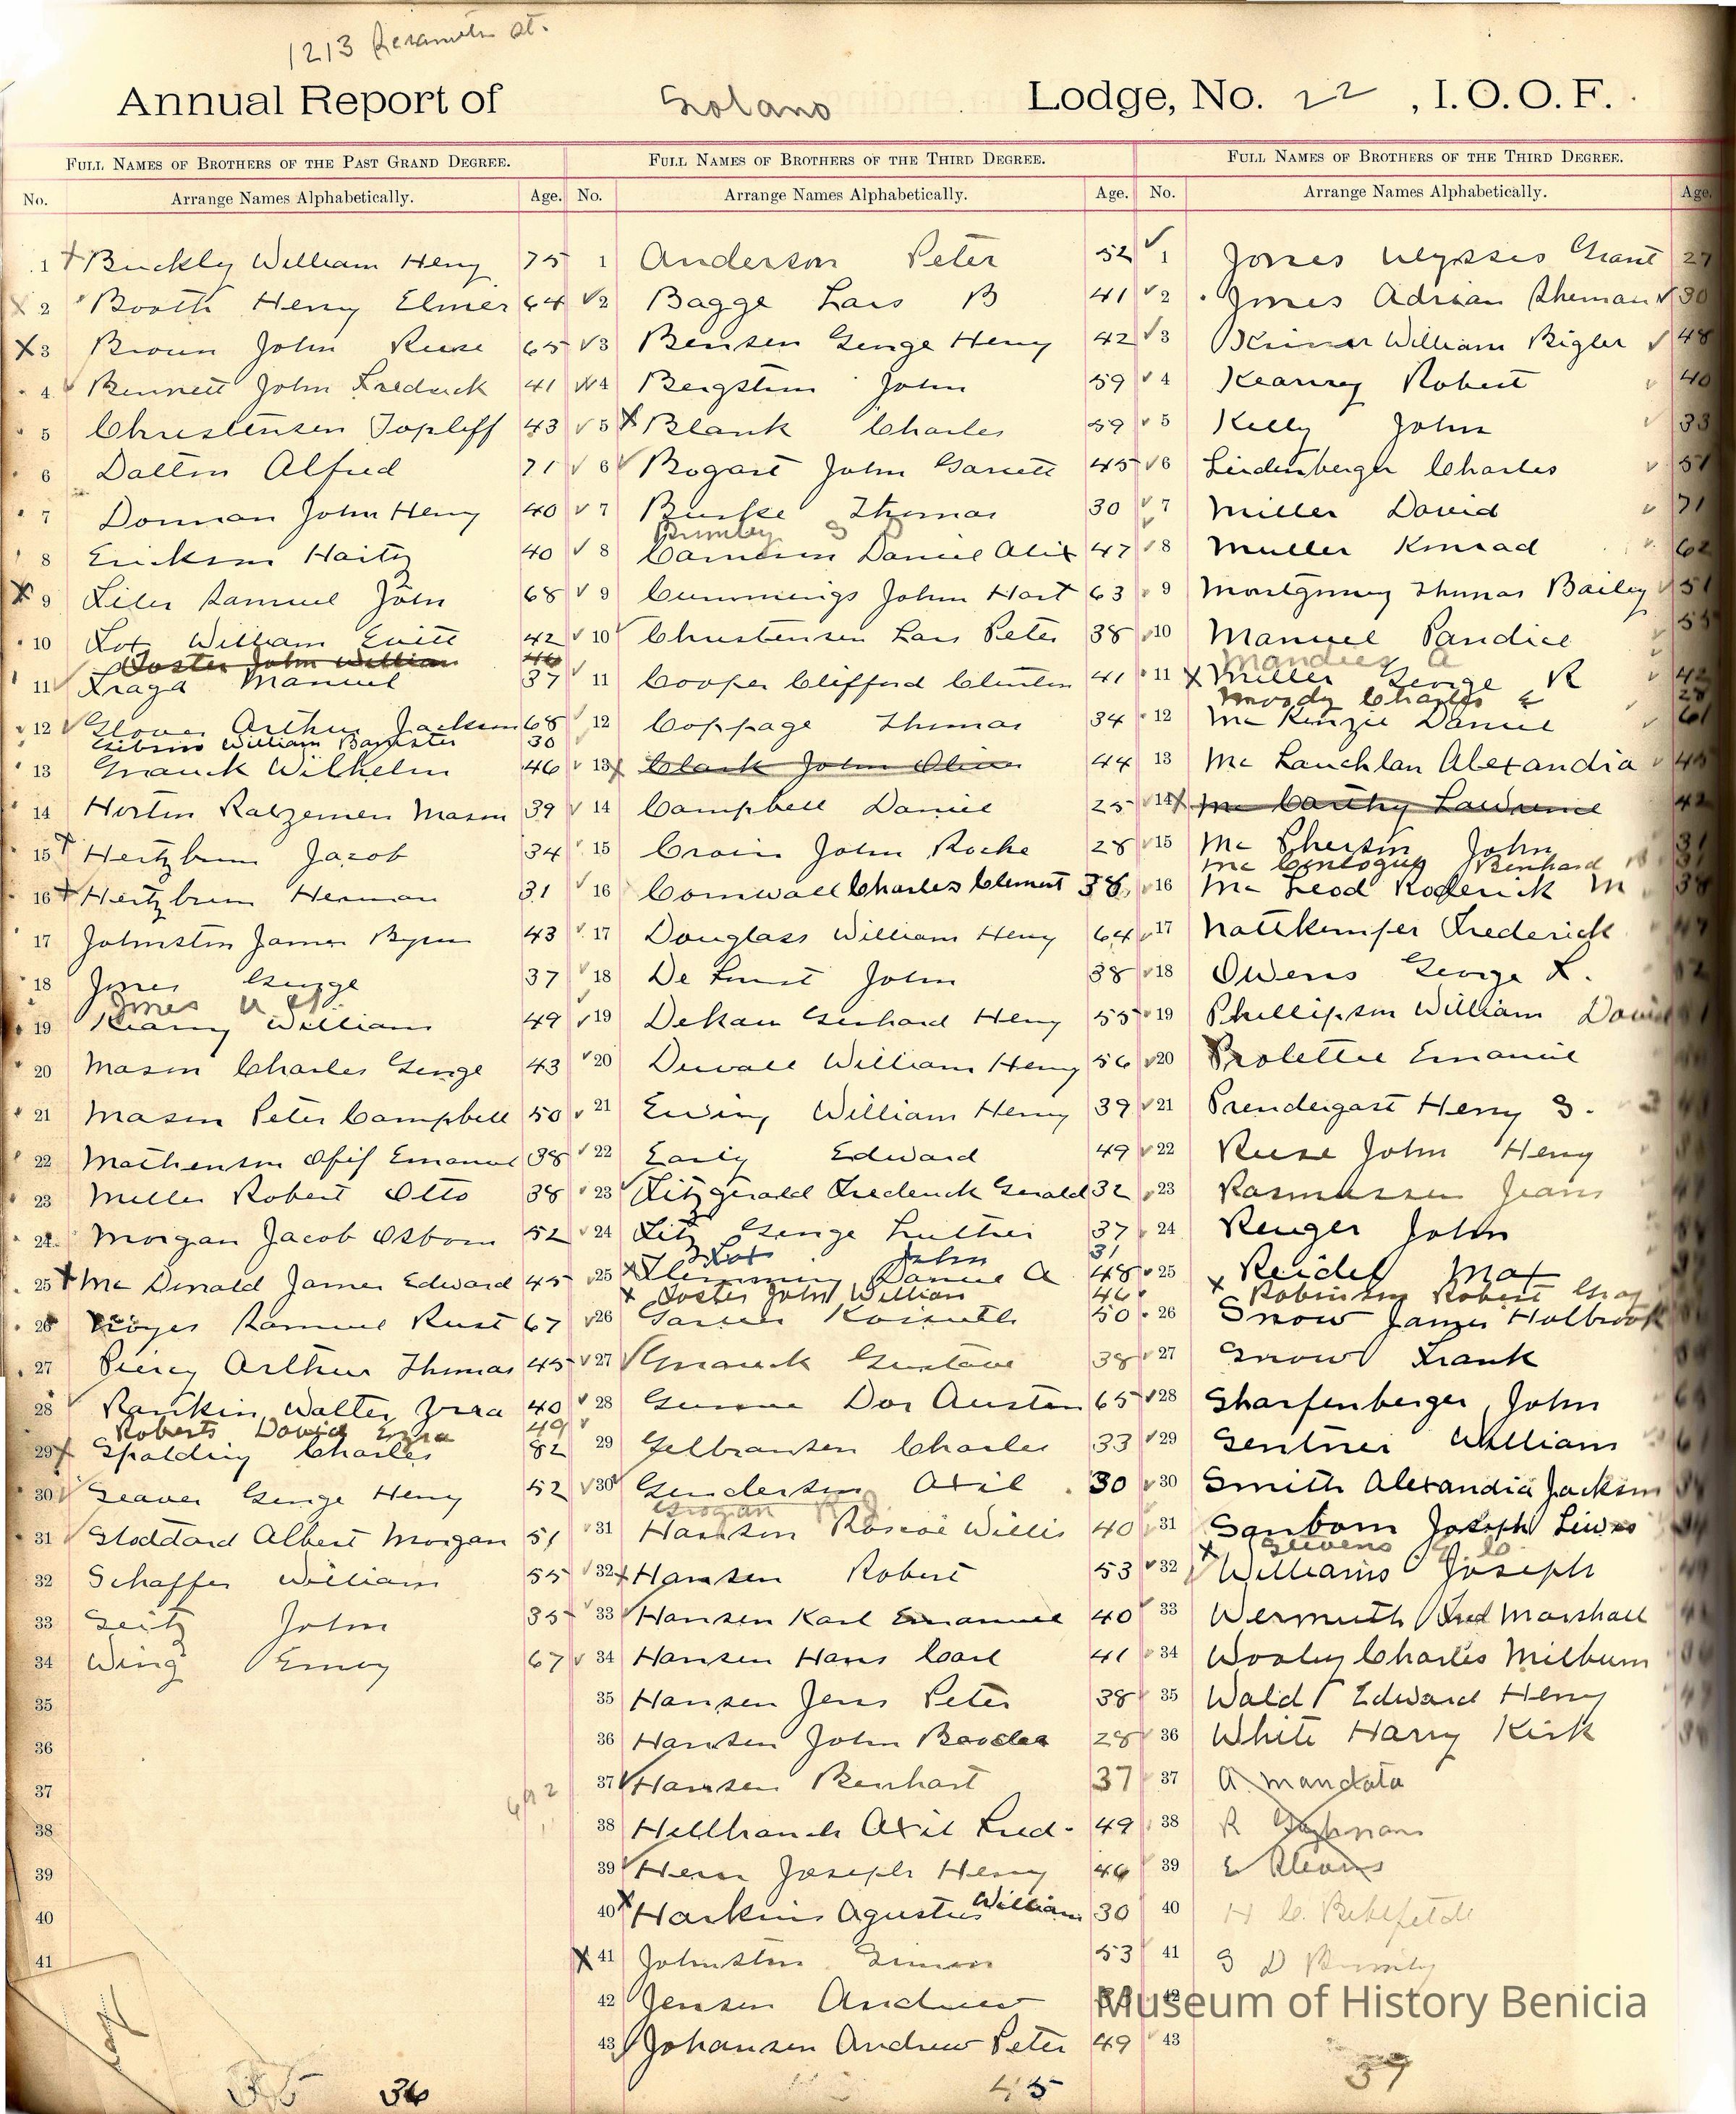 1213 St.
Annual Report of Solano Lodge, No. 22, I.O.O.F.
Full Names of Brothers of the Past Grand Degree.
No. Arrange Names Alphabetically. Age.
1 Buckly William Henry 75
2 Booth Henry Elmer 64
3 Brown John Reese 65
4 Bennett John Fredrick 41
5 Christensen Topliff 43
6 Dalton Alfred 71
7 Dornan John Henry 40
8 Erickson Haity 40
9 Filer Samuel John 68
10 Fox William Evitt 42
Foster John William 46
11 Fraga Manuel 37
12 Glover Arthur Jackson 68
Gibson William Banister 30
13 Gnauck Wilhelm 46
14 Horton Ratzemen Mason 39
15 Hertzbrun Jacob 34
16 Hertzbrun Herman 31
17 Johnston James Byron 43
18 Jones George 37
Jones U G
19 Kearny William 49
20 Mason Charles George 43
21 Mason Peter Campbell 50
22 Mathenson Olif Emanuel 38
23 Miller Robert Otto 38
24 Morgan Jacob Osborn 52
25 Mc Donald James Edward 45
26 Samuel Rust 67
27 Piercy Arthur Thomas 45
28 Rankin Walter Ezra 40
Roberts David Ezra 49
29 Spalding Charles 82
30 Seaver George Henry 52
31 Stoddard Albert Morgan 51
32 Schaffer William 55
33 Seitz John 35
34 Wing Emory 67
35
36
37
38
39
40
41
36
Full Names of Brothers of the Third Degree.
No. Arrange Names Alphabetically. Age.
1 Anderson Peter 52
2 Bagge Lars B 41
3 Bensen George Henry 42
4 Bergstrom John 59
5 Blank Charles 59
6 Bogart John Garrett 45
7 Burke Thomas 30
Brumley S D
8 Cameron Daniel Alix 47
9 Cummings John Hart 63
10 Christensen Lars Peter 38
11 Cooper Clifford Clinton 41
12 Coppage Thomas 34
13 Clark John Oliver 44
14 Campbell Daniel 25
15 Crain John Roche 28
16 Cornwall Charles Clement 38
17 Douglass William Henry 64
18 De Ernst John 38
19 Dekan Gerhard Henry 55
20 Duvall William Henry 56
21 Ewing William Henry 39
22 Early Edward 49
23 Fitzgerald Frederick Gerald 32
24 Fitz George Luther 37
Fox John 31
25 Flemming Daniel A 48
Foster John William 46
26 Garsen Kossuth 50
27 Gnauck Gustave 38
28 Gunne Dor Austen 65
29 Gelbransen Charles 33
30 Gundersen Axil 30
Grogan R J
31 Hanson Roscoe Willis 40
32 Hansen Robert 53
33 Hansen Karl Emanuel 40
34 Hansen Hans Carl 41
35 Hansen Jens Peter 38
36 Hansen John 28
37 Hansen Benhart 37
38 Hillbranch Axil Fred. 49
39 Hern Joseph Henry 46
40 Harkins Agustus William 30
41 Johnston Simon 53
42 Jensen Andrew
43 Johansen Andrew Peter 49
45
Full Names of Brothers of the Third Degree.
No. Arrange Names Alphabetically. Age.
1 Jones Ulysses Grant 27
2 Jones Adrian Sherman 30
3 William Bigler 48
4 Kearney Robert 40
5 Kelly John 33
6 Lindenberger Charles 51
7 Miller David 71
8 Muller Konrad 62
9 Montgomery Thomas Bailey 51
10 Manuel Pandice 55
A
11 Miller George R 42
Moody Charles E 28
12 Mc Kenzie Daniel 61
13 Mc Lauchlan Alexandia 45
14 Mc Carthy Lawrence 42
15 Mc Pherson John 31
Mc Benhard 31
16 Mc Leod Roderick M 38
17 Nattkemper Frederick 47
18 Owens George F.
19 Phillipson William David
20 Prolettie Emanuel
21 Prendergast Henry S.
22 Reese John Henry
23 Rasmussen Jeans
24 Renger John
25 Reidel Max
Robinson Robert Gray
26 Snow James Holbrook
27 Snow Frank
28 Sharfenberger John
29 Sentner William
30 Smith Alexandia Jackson
31 Sanborn Joseph Lewis
Stevens E. C.
32 Williams Joseph
33 Wermuth Fred Marshall
34 Wooley Charles Milburn
35 Wald Edward Henry
36 White Harry Kirk
37 A. Mandata
38 R
39 E Stevens
40 H C.
41 S D Brumley
42
43
37
Museum of History Benicia